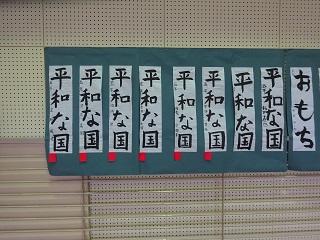 おもち
平和な国
平和な国
平和な国
平和な国
平和な国
平和な国
平和な国
平和な国